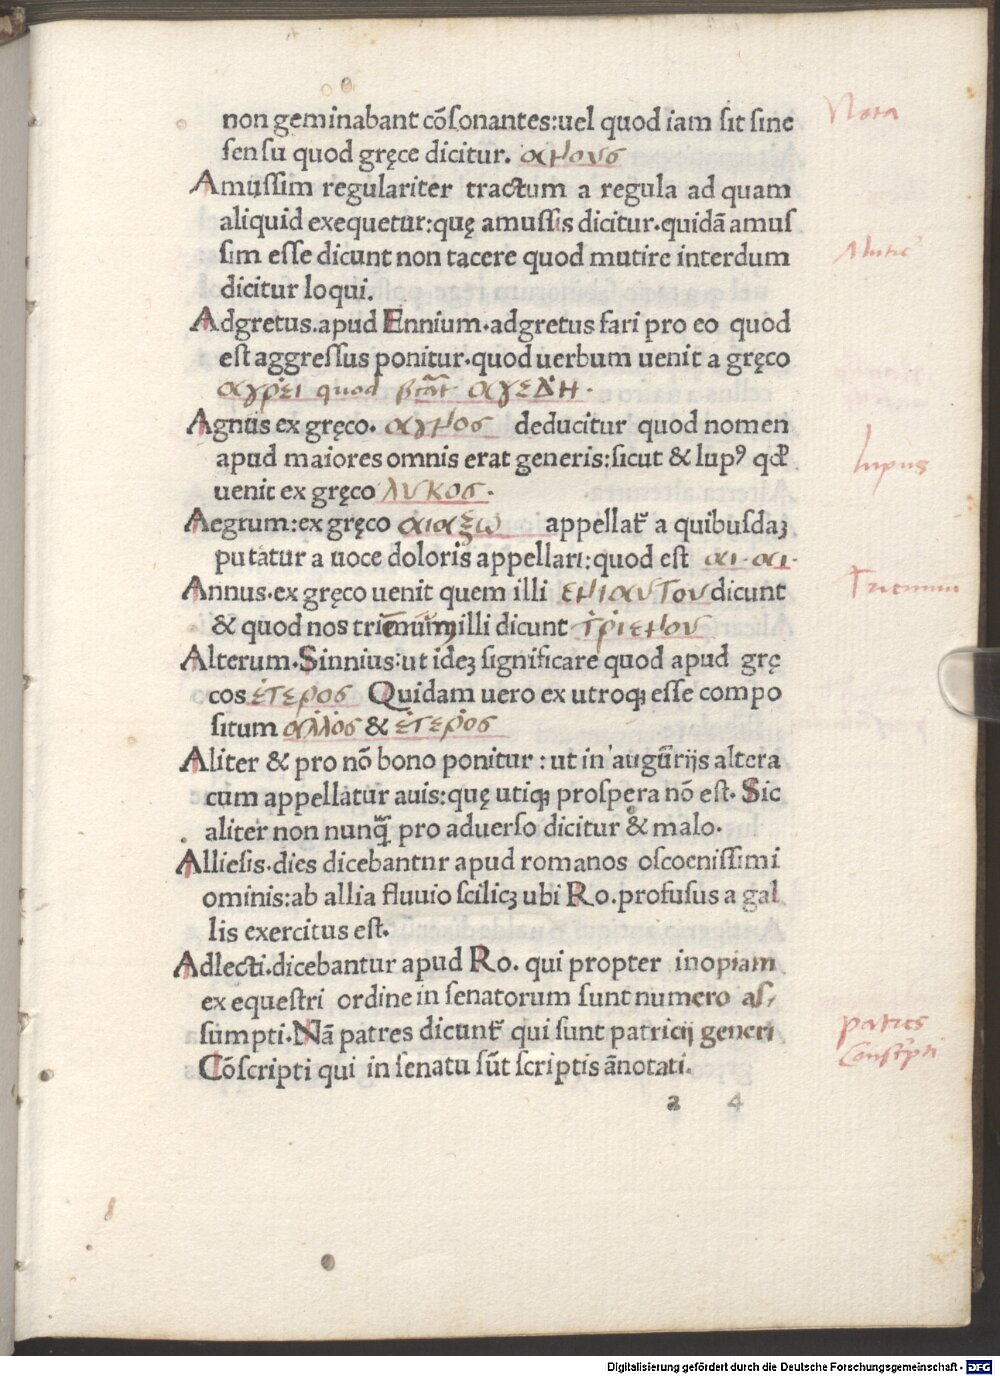 non geminabant cōſonantes:uel quod iam ſit ſine
ſenſu quod gręce dicitur. αμους
Nota
Amuſſim regulariter tractum a regula ad quam
aliquid exequetur:quę amuſſis dicitur.quidā amuſ
ſim eſſe dicunt non tacere quod mutire interdum
dicitur loqui.
Adgretus.apud Ennium.adgretus fari pro eo quod
eſt aggreſſus ponitur.quod uerbum uenit a gręco
αγρει quod αγεΔΗ.
Agnus ex gręco. αγνος deducitur quod nomen
apud maiores omnis erat generis:ſicut & lupꝰ qđ
lupus
uenit ex gręco λυκος.
Aegrum:ex gręco αιαξω appellat̃ a quibuſdaʒ
putatur a uoce doloris appellari:quod eſt αι.αι.
Annus.ex gręco uenit quem illi ενιαυτου dicunt
& quod nos triēnium illi dicunt τριενου
Alterum.Sinnius:ut ideʒ ſignificare quod apud grę
cos ετερος Quidam uero ex utroqꝫ eſſe compo
ſitum αλλος & ετερος
Aliter & pro nō bono ponitur : ut in augurijs altera
cum appellatur auis:quę utiqꝫ proſpera nō eſt. Sic
aliter non nunq̄ pro aduerſo dicitur & malo.
Allieſis.dies dicebantnr apud romanos oſcoeniſſimi
ominis:ab allia fluuio ſcilicʒ ubi Ro.profuſus a gal
lis exercitus eſt.
Adlecti.dicebantur apud Ro. qui propter inopiam
ex equeſtri ordine in ſenatorum ſunt numero aſ,
ſumpti.Nā patres dicunt̃ qui ſunt patricij generi
patres
Cōſcripti qui in ſenatu ſūt ſcriptis ānotati.
a 4
Digitalisierung gefördert durch die Deutsche Forschungsgemeinschaft - DFG